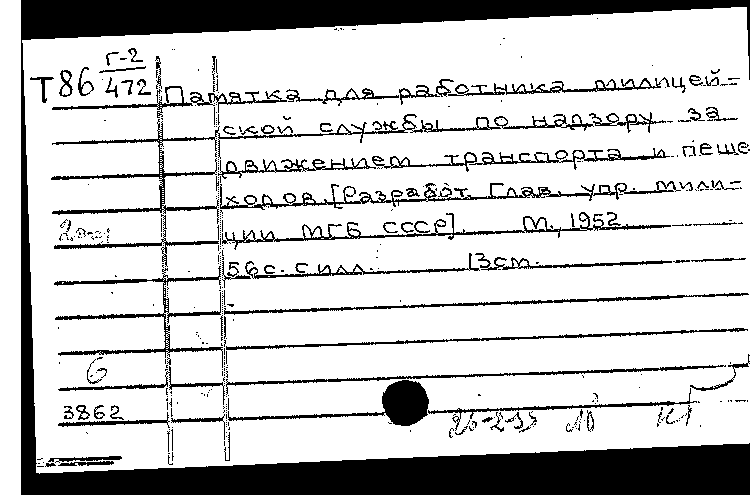 Г-2
Т86 472
Памятка для работника милицей-
ской службы по надзору за
движением транспорта и пеше
ходов. [Разработ. Глав. упр. мили-
ции МГБ СССР]. М., 1952
56 с. с илл. 13 см.
6
3862